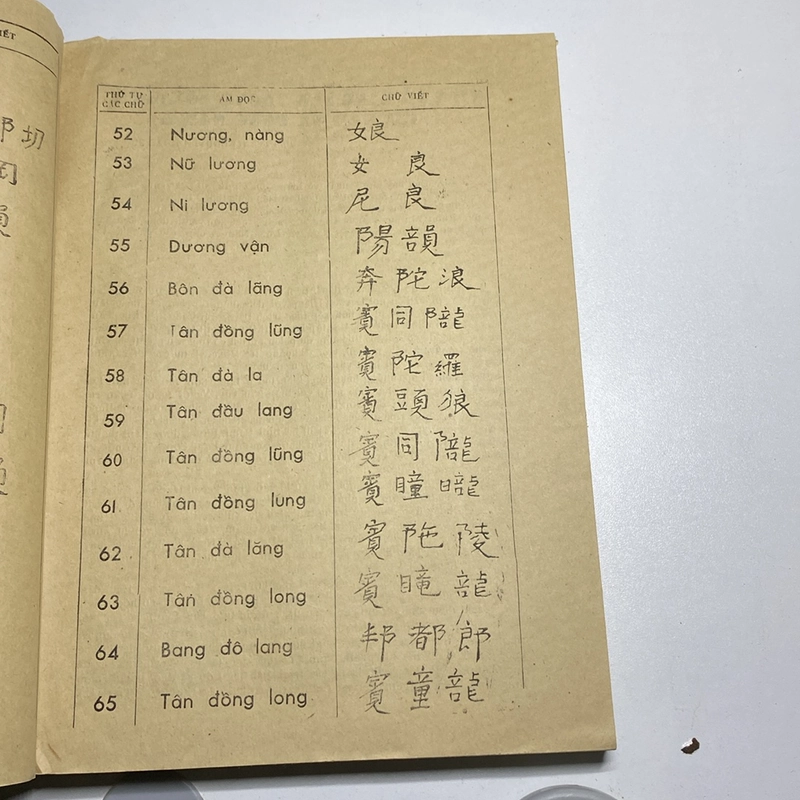 IẾT
切
THỨ TỰ CÁC CHỮ ÂM ĐỌC CHỮ VIẾT
52 Nương, nàng 娘
53 Nữ lương 女 良
54 Ni lương 尼 良
55 Dương vận 陽 韻
56 Bôn đà lãng 奔 陀 浪
57 Tân đồng lũng 賓 同 隴
58 Tân đà la 賓 陀 羅
59 Tân đầu lang 賓 頭 狼
60 Tân đồng lũng 賓 同 隴
61 Tân đồng lung 賓 瞳 曨
62 Tân đà lăng 賓 陁 陵
63 Tân đồng long 賓 曈 龍
64 Bang đô lang 邦 都 郎
65 Tân đồng long 賓 童 龍